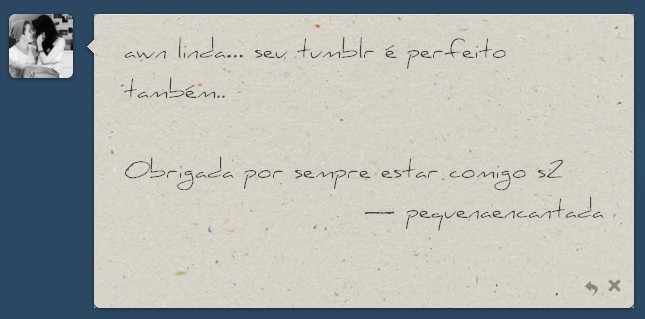 awn linda... seu tumblr é perfeito
também..
Obrigada por sempre estar comigo s2
— pequenaencantada